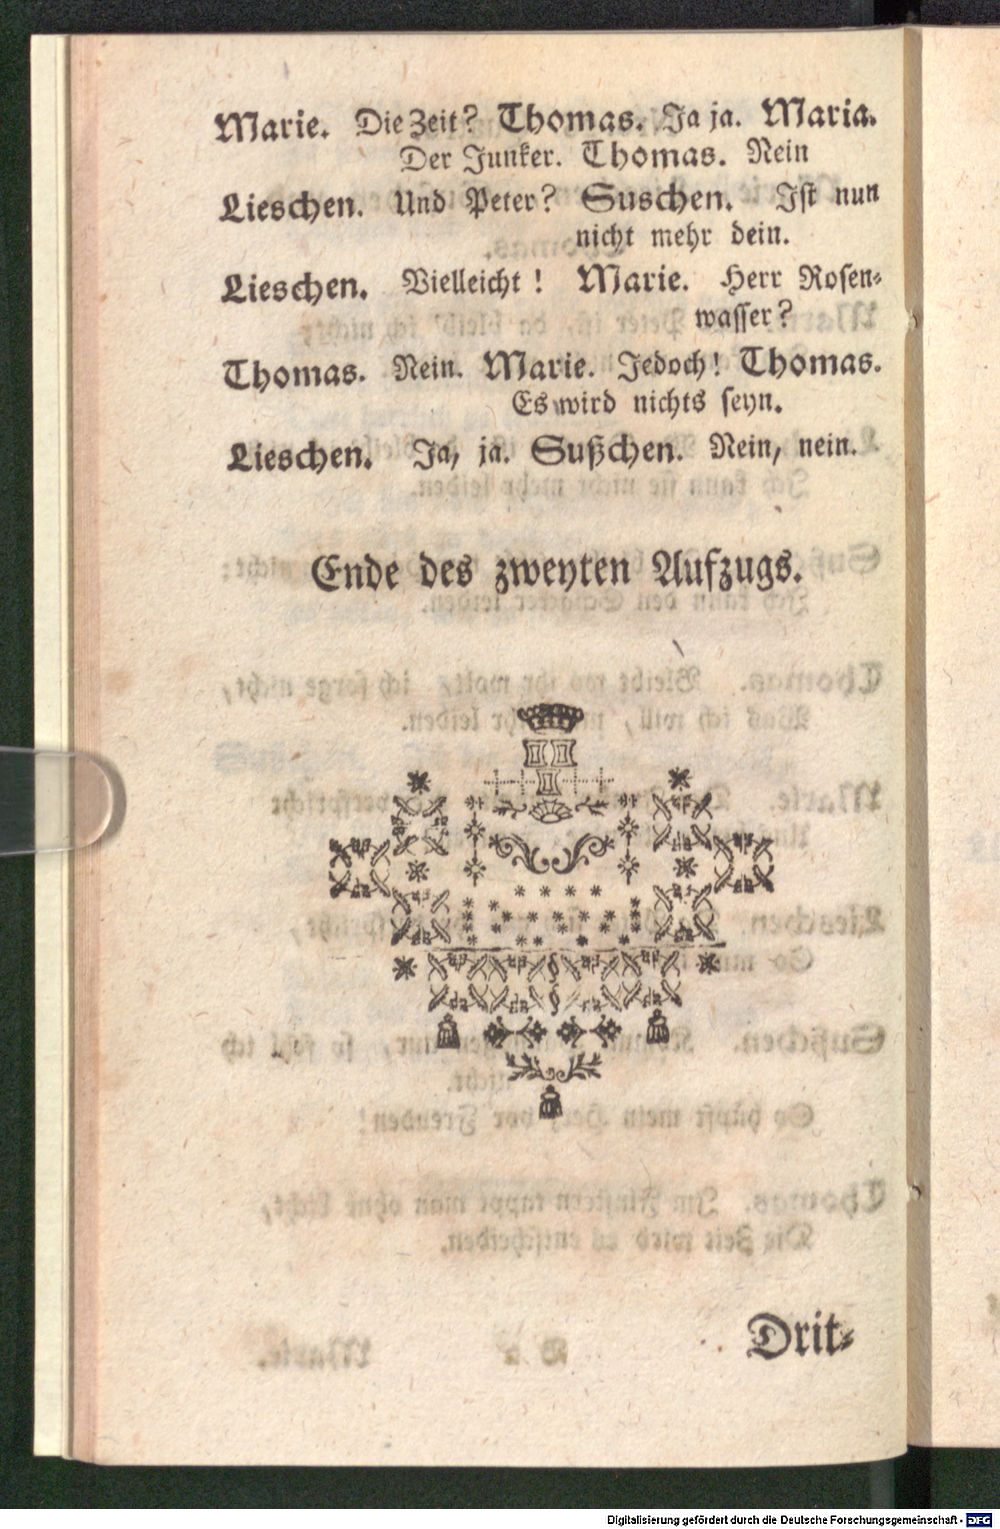 Marie. Die Zeit? Thomas. Ja ja. Maria.
Der Junker. Thomas. Nein
Lieschen. Und Peter? Suschen. Ist nun
nicht mehr dein.
Lieschen. Vielleicht! Marie. Herr Rosen-
wasser?
Thomas. Nein. Marie. Jedoch! Thomas.
Es wird nichts seyn.
Lieschen. Ja, ja. Sußchen. Nein, nein.
Ende des zweyten Aufzugs.
Drit-
Digitalisierung gefördert durch die Deutsche Forschungsgemeinschaft - DFG